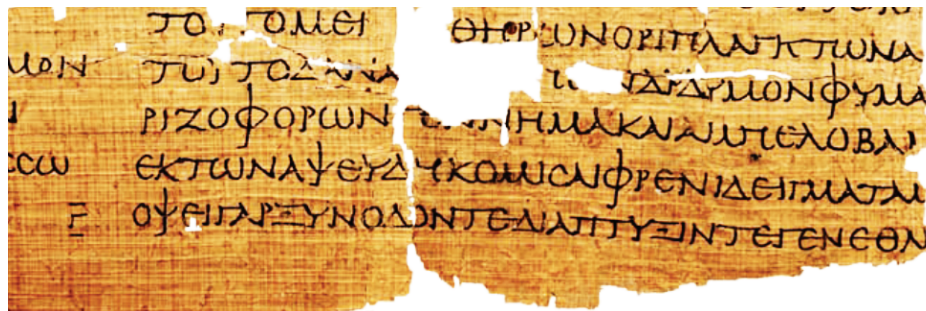 ΤΟ ΤΟΜΕΙ ΘΗΡ ΩΝΟΡΙΠΛΑΓΚΤΩΝΑ
ΜΟΝ ΤΟΥΤΟΔΑΝΑ ΩΝΔΙΔΥΜΟΝΦΥΜΑ
ΡΙΖΟΦΟΡΩΝ ΕΝΝΗΜΑΚΑΙΑΜΠΕΛΟΒΑ
CCΩ ΕΚΤΩΝΑΨΕΥΔΗΚΟΜΙCΑΙΦΡΕΝΙΔΕΙΓΜΑΤΑΜ
Ξ ΟΨΕΙΓΑΡΞΥΝΟΔΟΝΤΕΔΙΑΠΤΥΞΙΝΤΕΓΕΝΕΘΛ